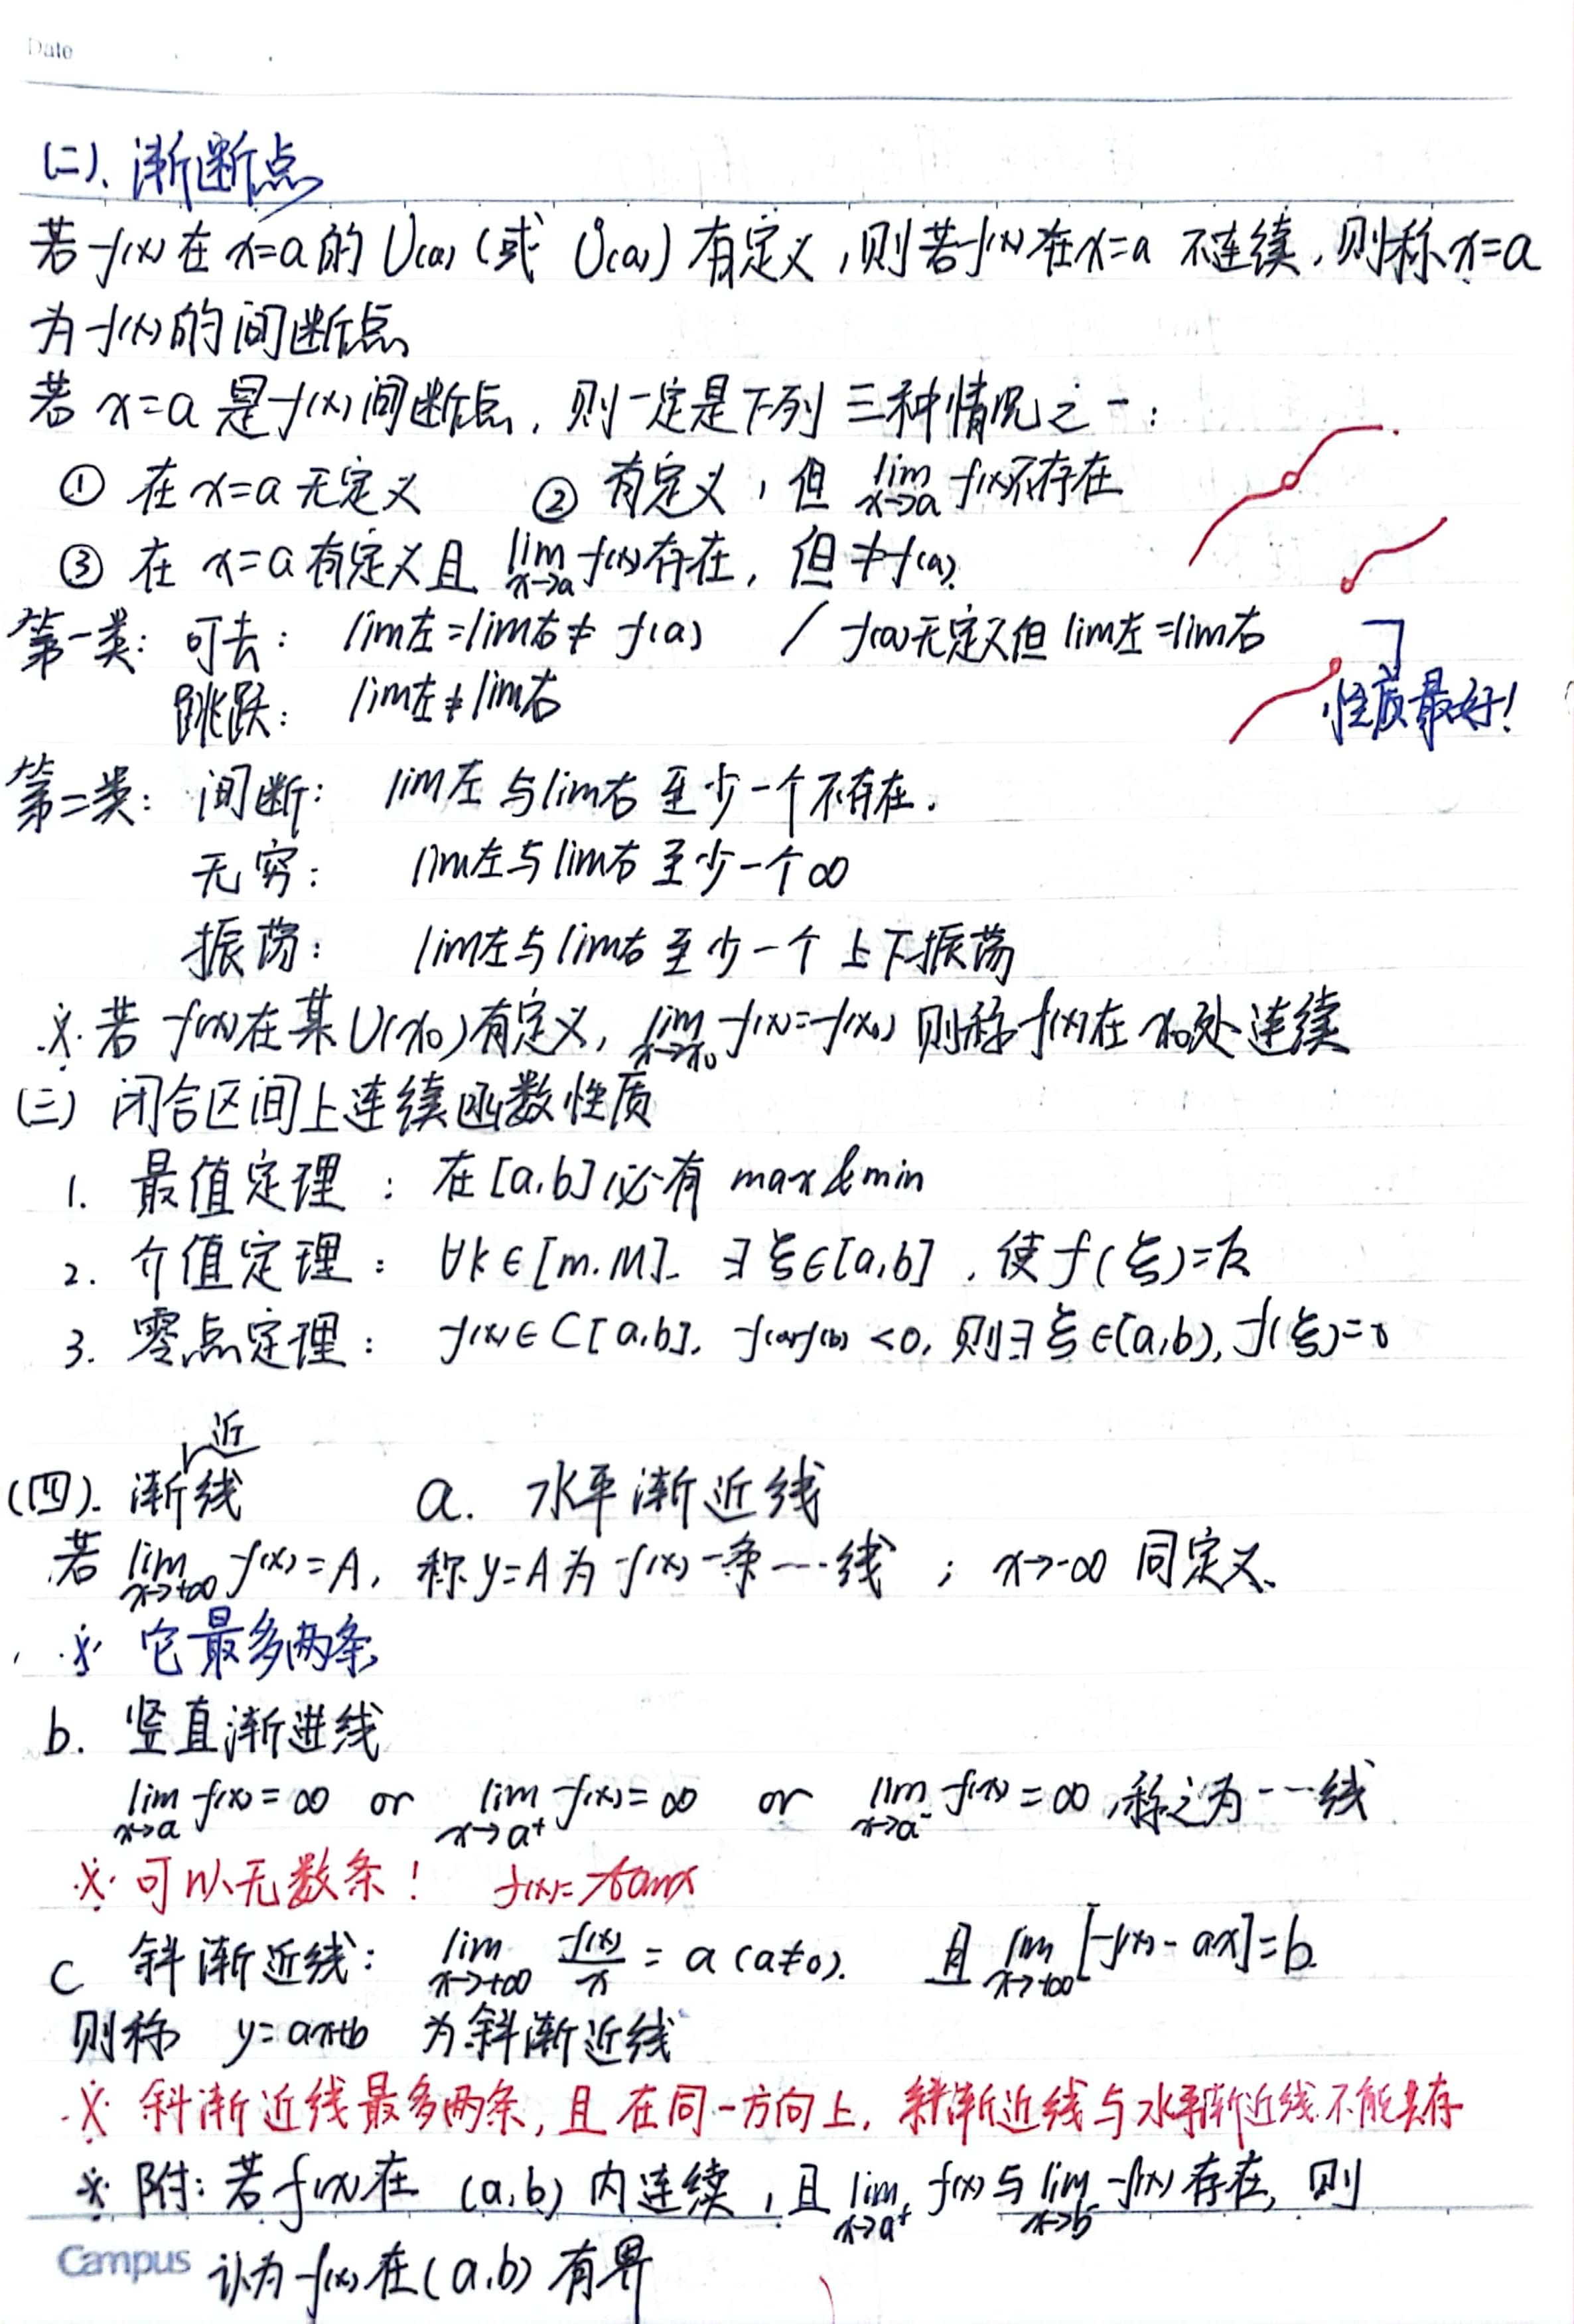 Date
(二)、渐断点
若f(x)在x=a的U(a)(或Ů(a))有定义,则若f(x)在x=a 不连续,则称x=a
为f(x)的间断点
若x=a是f(x)间断点,则一定是下列三种情况之一:
① 在x=a无定义 ② 有定义,但 lim x→a f(x)不存在
③ 在x=a有定义且 lim x→a f(x)存在,但≠f(a).
第一类: 可去: lim左=lim右≠f(a) / f(a)无定义但lim左=lim右
跳跃: lim左≠lim右
性质最好!
第二类: 间断: lim左与lim右至少一个不存在.
无穷: lim左与lim右至少一个∞
振荡: lim左与lim右至少一个上下振荡
※若f(x)在某U(x₀)有定义, lim x→x₀ f(x)=f(x₀) 则称f(x)在x₀处连续
(三) 闭合区间上连续函数性质
1. 最值定理: 在[a,b]必有 max&min
2. 介值定理: ∀k∈[m.M]. ∃ξ∈[a,b],使f(ξ)=k
3. 零点定理: f(x)∈C[a,b], f(a)f(b)<0,则∃ξ∈(a,b),f(ξ)=0
近
(四). 渐线 a. 水平渐近线
若 lim x→+∞ f(x)=A, 称y=A为f(x)一条…线 ; x→-∞ 同定义.
※ 它最多两条
b. 竖直渐进线
lim x→a f(x)=∞ or lim x→a⁺ f(x)=∞ or lim x→a⁻ f(x)=∞,称之为…线
※ 可以无数条! f(x)=tanx
C 斜渐近线: lim x→+∞ f(x)/x = a (a≠0). 且 lim x→+∞ [f(x)-ax]=b.
则称 y=ax+b 为斜渐近线
※ 斜渐近线最多两条,且在同一方向上,斜渐近线与水平渐近线不能共存
※ 附:若f(x)在 (a,b) 内连续,且 lim x→a⁺ f(x)与 lim x→b⁻ f(x)存在,则
Campus 认为f(x)在(a,b)有界